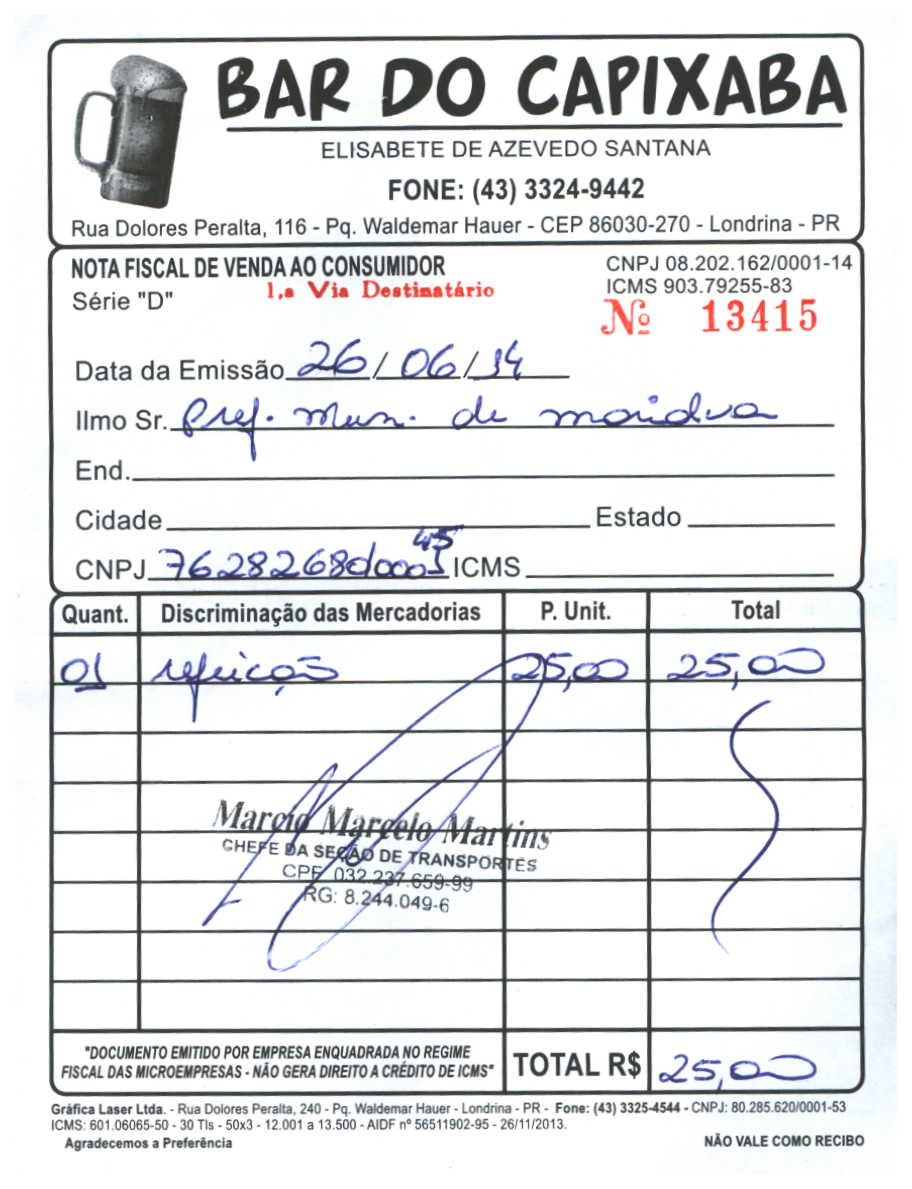 BAR DO CAPIXABA
ELISABETE DE AZEVEDO SANTANA
FONE: (43) 3324-9442
Rua Dolores Peralta, 116 - Pq. Waldemar Hauer - CEP 86030-270 - Londrina - PR
NOTA FISCAL DE VENDA AO CONSUMIDOR
CNPJ 08.202.162/0001-14
Série "D"
1,a Via Destinatário
ICMS 903.79255-83
Nº 13415
Data da Emissão 26/06/14
Ilmo Sr. Pref. Mun. de
End.
Cidade Estado
CNPJ ICMS
Quant. Discriminação das Mercadorias P. Unit. Total
01 refeição 25,00 25,00
Marcio Marcelo Martins
CHEFE DA SEÇÃO DE TRANSPORTES
CPF 032.237.659-99
RG: 8.244.049-6
"DOCUMENTO EMITIDO POR EMPRESA ENQUADRADA NO REGIME
FISCAL DAS MICROEMPRESAS - NÃO GERA DIREITO A CRÉDITO DE ICMS"
TOTAL R$ 25,00
Gráfica Laser Ltda. - Rua Dolores Peralta, 240 - Pq. Waldemar Hauer - Londrina - PR - Fone: (43) 3325-4544 - CNPJ: 80.285.620/0001-53
ICMS: 601.06065-50 - 30 Tls - 50x3 - 12.001 a 13.500 - AIDF nº 56511902-95 - 26/11/2013.
Agradecemos a Preferência
NÃO VALE COMO RECIBO